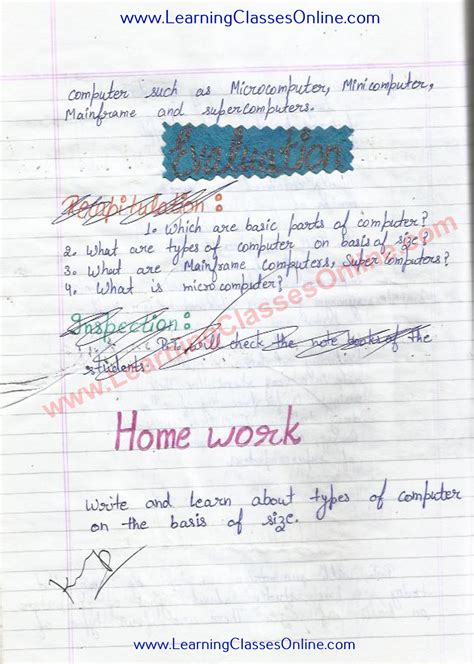 www.LearningClassesOnline.com
computer such as Microcomputer, Minicomputer,
Mainframe and supercomputers.
Evaluation
Recapitulation :
1. Which are basic parts of computer?
2. What are types of computer on basis of size?
3. What are Mainframe computers, Super computers?
4. What is microcomputer?
www.LearningClassesOnline.com
Inspection :
P.T. will check the note books of the
students
Home work
Write and learn about types of computer
on the basis of size.
www.LearningClassesOnline.com